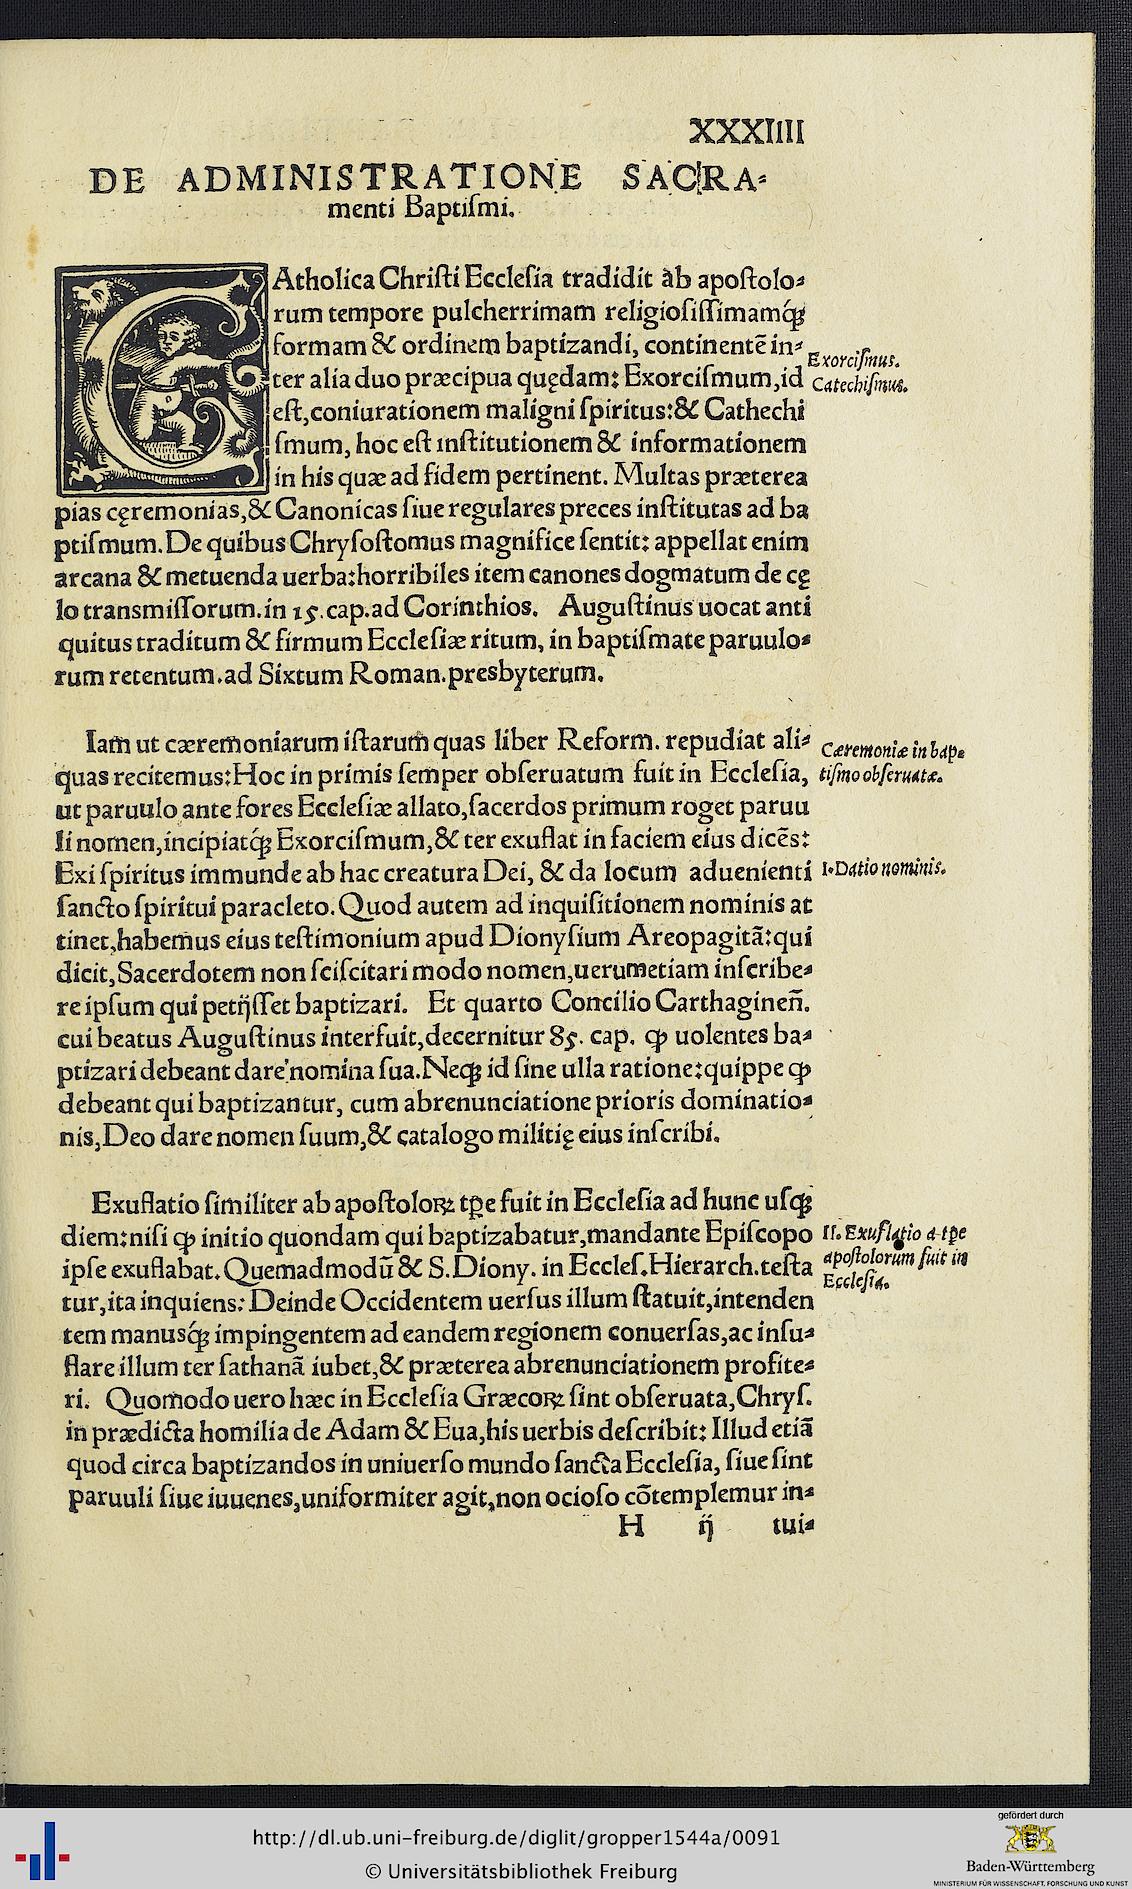 XXXIIII
DE ADMINISTRATIONE SACRA⸗
menti Baptiſmi.
CAtholica Chriſti Eccleſia tradidit ab apoſtolo⸗
rum tempore pulcherrimam religioſiſſimamq́ꝫ
formam & ordinem baptizandi, continentē in⸗
ter alia duo præcipua quędam: Exorciſmum,id
eſt,coniurationem maligni ſpiritus:& Cathechi
ſmum, hoc eſt inſtitutionem & informationem
in his quæ ad fidem pertinent. Multas præterea
pias cęremonias,& Canonicas ſiue regulares preces inſtitutas ad ba
ptiſmum.De quibus Chryſoſtomus magnifice ſentit: appellat enim
arcana & metuenda uerba:horribiles item canones dogmatum de cę
lo transmiſſorum.in 15.cap.ad Corinthios. Auguſtinus uocat anti
quitus traditum & firmum Eccleſiæ ritum, in baptiſmate paruulo⸗
rum retentum.ad Sixtum Roman.presbyterum.
Exorciſmus.
Catechiſmus.
Iam ut cæremoniarum iſtarum quas liber Reform. repudiat ali⸗
quas recitemus:Hoc in primis ſemper obſeruatum fuit in Eccleſia,
ut paruulo ante fores Eccleſiæ allato,ſacerdos primum roget paruu
li nomen,incipiatq́ꝫ Exorciſmum,& ter exuflat in faciem eius dicēs:
Exi ſpiritus immunde ab hac creatura Dei, & da locum aduenienti
ſancto ſpiritui paracleto.Quod autem ad inquiſitionem nominis at
tinet,habemus eius teſtimonium apud Dionyſium Areopagitā:qui
dicit,Sacerdotem non ſciſcitari modo nomen,uerumetiam inſcribe⸗
re ipſum qui petijſſet baptizari. Et quarto Concilio Carthaginen̄.
cui beatus Auguſtinus interfuit,decernitur 85. cap. ꝙ uolentes ba⸗
ptizari debeant dare nomina ſua.Neqꝫ id ſine ulla ratione:quippe ꝙ
debeant qui baptizantur, cum abrenunciatione prioris dominatio⸗
nis,Deo dare nomen ſuum,& catalogo militię eius inſcribi.
Cæremoniæ in bap⸗
tiſmo obſeruatæ.
I.Datio nominis.
Exuflatio ſimiliter ab apoſtoloꝝ tꝑe fuit in Eccleſia ad hunc uſqꝫ
diem:niſi ꝙ initio quondam qui baptizabatur,mandante Epiſcopo
ipſe exuflabat.Quemadmodū & S.Diony. in Eccleſ.Hierarch.teſta
tur,ita inquiens: Deinde Occidentem uerſus illum ſtatuit,intenden
tem manusq́ꝫ impingentem ad eandem regionem conuerſas,ac inſu⸗
flare illum ter ſathanā iubet,& præterea abrenunciationem profite⸗
ri. Quomodo uero hæc in Eccleſia Græcoꝝ ſint obſeruata,Chryſ.
in prædicta homilia de Adam & Eua,his uerbis deſcribit: Illud etiā
quod circa baptizandos in uniuerſo mundo ſancta Eccleſia, ſiue ſint
paruuli ſiue iuuenes,uniformiter agit,non ocioſo cōtemplemur in⸗
II. Exuflatio a tꝑe
apoſtolorum fuit in
Eccleſia.
H ij tui⸗
http://dl.ub.uni-freiburg.de/diglit/gropper1544a/0091
© Universitätsbibliothek Freiburg
gefördert durch
Baden-Württemberg
MINISTERIUM FÜR WISSENSCHAFT, FORSCHUNG UND KUNST